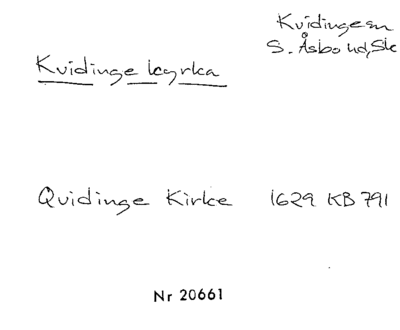 Kvidinge sn
S. Åsbo hd, Sk
Kvidinge kyrka
Quidinge Kirke 1629 KB 791
Nr 20661